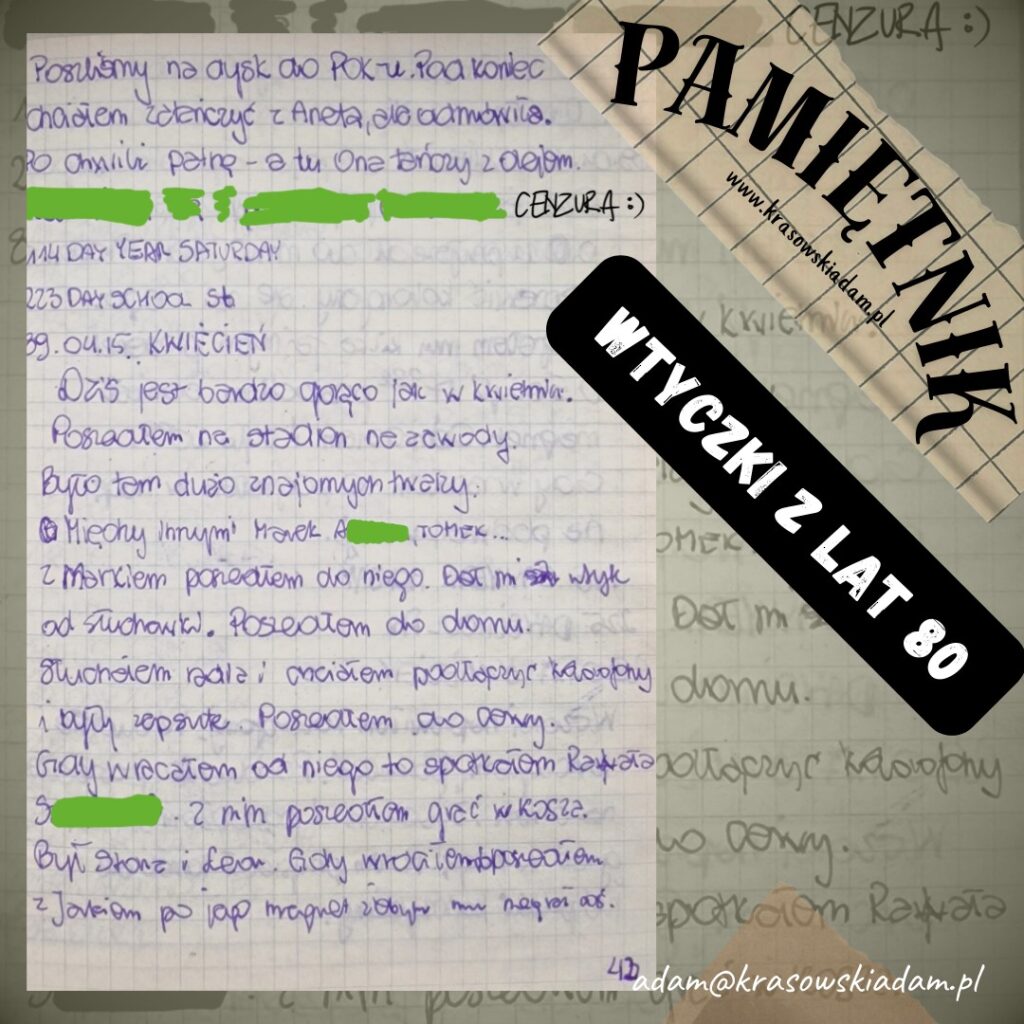 Poszliśmy na dysk do POK-u. Pod koniec
chciałem zatańczyć z Anetą, ale odmówiła.
Po chwili patrzę - a tu Ona tańczy z
CENZURA :)
114 DAY YEAR SATURDAY
223 DAY SCHOOL St
89.04.15. KWIECIEŃ
Dziś jest bardzo gorąco jak w kwietniu.
Poszedłem na stadion na zawody.
Było tam dużo znajomych twarzy.
Między innymi Marek A TOMEK...
Z Markiem poszedłem do niego. Dał mi wtyk
od słuchawki. Poszedłem do domu.
Słuchałem radia i chciałem podłączyć
i były zepsute. Poszedłem do
Gdy wracałem od niego to spotkałem Rafała
S . Z nim poszedłem grać w kosza.
Był i Gdy wróciłem poszedłem
z po jego magnet żeby mi nagrał coś.
42
PAMIĘTNIK
www.krasowskiadam.pl
WTYCZKI Z LAT 80
adam@krasowskiadam.pl
CENZURA :)